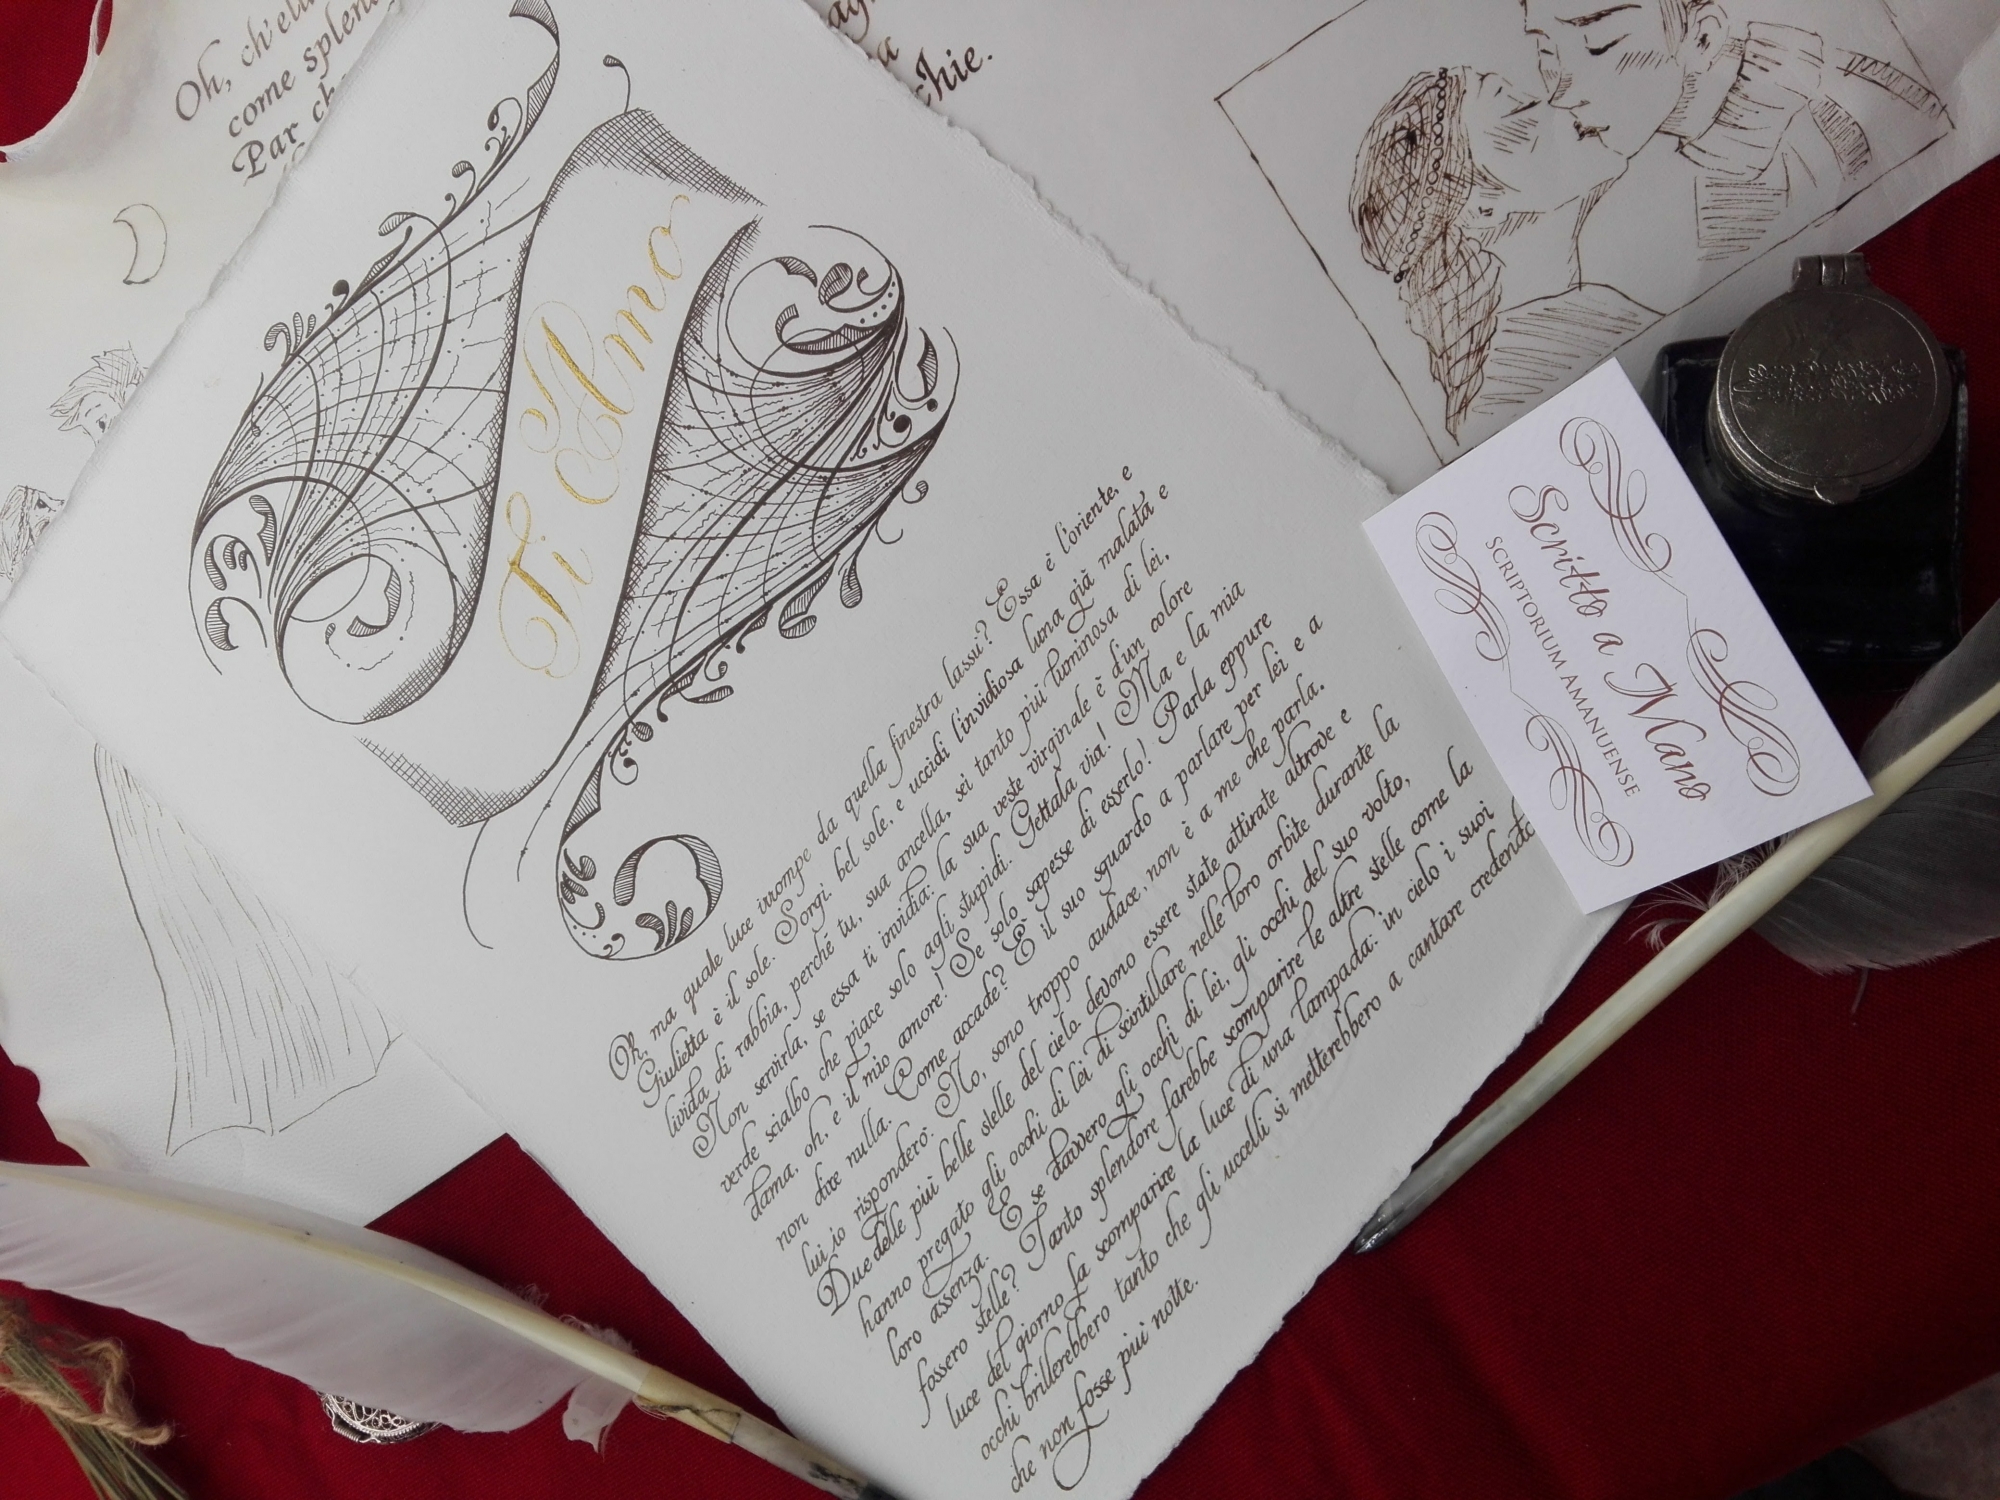 Oh, ch'ella
come splend
Par ch
chie.
Ti Amo
Oh, ma quale luce irrompe da quella finestra lassù? Essa è l'oriente, e
Giulietta è il sole. Sorgi, bel sole, e uccidi l'invidiosa luna già malata e
livida di rabbia, perché tu, sua ancella, sei tanto più luminosa di lei.
Non servirla, se essa ti invidia: la sua veste virginale è d'un colore
verde scialbo che piace solo agli stupidi. Gettala via! Ma e la mia
dama, oh, e il mio amore! Se solo sapesse di esserlo! Parla eppure
non dire nulla. Come accade? È il suo sguardo a parlare per lei e a
lui io risponderò. No, sono troppo audace, non è a me che parla.
Due delle più belle stelle del cielo devono essere state attirate altrove e
hanno pregato gli occhi di lei di scintillare nelle loro orbite durante la
loro assenza. E se davvero gli occhi di lei, gli occhi del suo volto,
fossero stelle? Tanto splendore farebbe scomparire le altre stelle come la
luce del giorno fa scomparire la luce di una lampada: in cielo i suoi
occhi brillerebbero tanto che gli uccelli si metterebbero a cantare credendo
che non fosse più notte.
Scritto a Mano
SCRIPTORIUM AMANUENSE